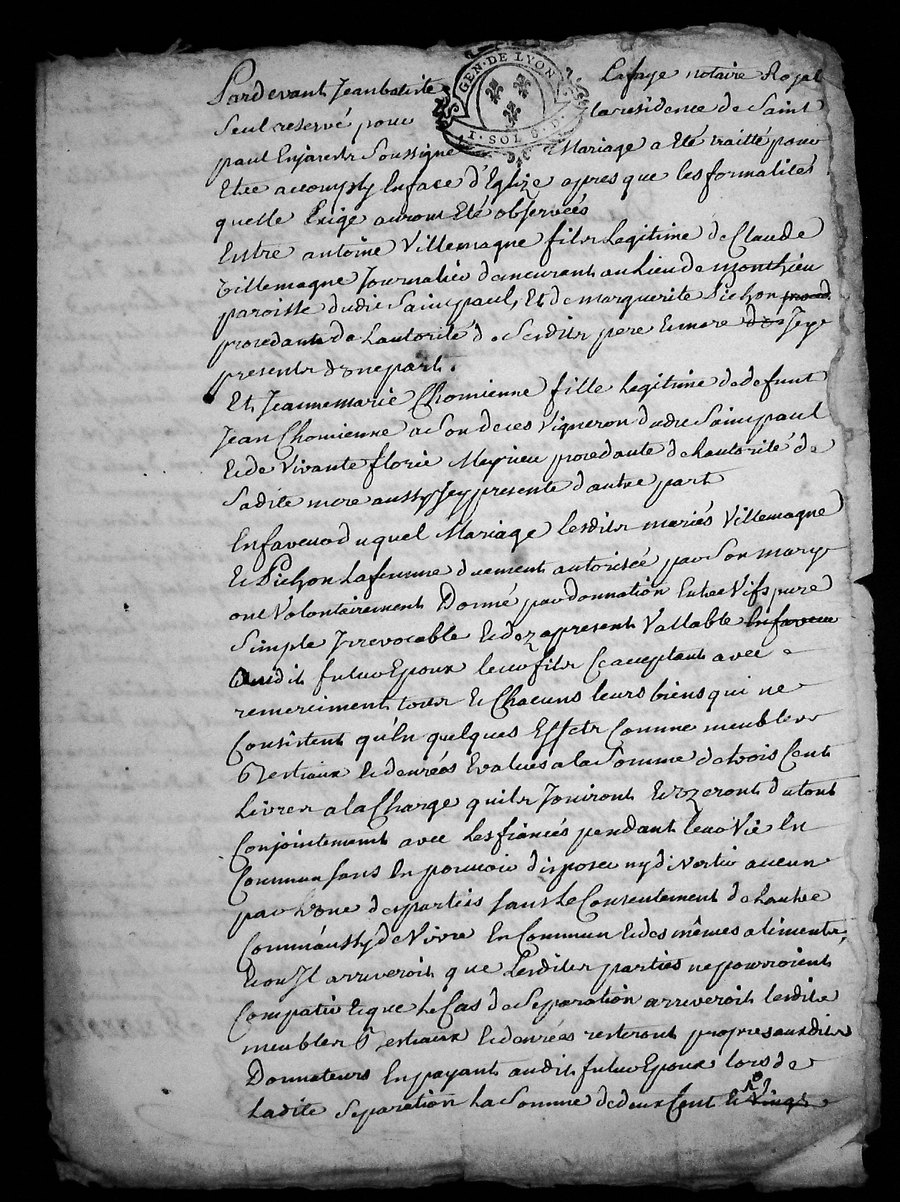 Pardevant Jeanbatiste Lafaye notaire Royal
GEN. DE LYON
I. SOL 8. D.
Seul reservé pour la residence de Saint
paul Enjarestz Soussigné Mariage a Eté traitté pour
Etre accomply Enface d'Eglize apres que les formalites
quelle Exige auront Eté observées
Entre antoine Villemagne fils legitime de Claude
Villemagne Journalier demeurant au Lieu de monthieu
paroisse dudit Saint paul, Et de marguerite Pichon
procedant de Lautorité de Sesdits pere Et mere Icy
presents d'une part.
Et Jeannemarie Chomienne fille legitime de defunt
Jean Chomienne a Son deces Vigneron dudit Saint paul
Et de Vivante florie Meyrieu procedante de Lautorité de
Sadite mere aussy Icy presente d'autre part
Enfaveur Duquel Mariage Lesdits mariés Villemagne
Et Pichon La femme duement autorisée par Son mary
ont Volontairement Donné par donnation Entre Vifs pure
Simple Irrevocable Et dez apresent Vallable Enfaveur
Audit futur Epoux leur fils Ce acceptant avec
remerciment tous Et Chacuns leurs biens qui ne
Consistent qu'En quelques Effets Comme meubles
Bestiaux Et denrées Evalués a la Somme de trois Cent
Livres a la Charge quils Jouiront Et uzeront du tout
Conjointement avec Les fiancés pendant leur Vie En
Commun Sans En pouvoir disposer ny divertir aucun
par L'une des parties Sans Le Consentement de Lautre
Comm'aussy de Vivre En Commun Et des mêmes aliments,
Et ou Il arriveroit que Lesdites parties ne pourroient
Compatir Et que Le Cas de Separation arriveroit Lesdits
meubles Bestiaux Et denrées resteront propres auxdits
Donnateurs En payant audit futur Epoux lors de
Ladite Separation La Somme de deux Cent Et Vingt